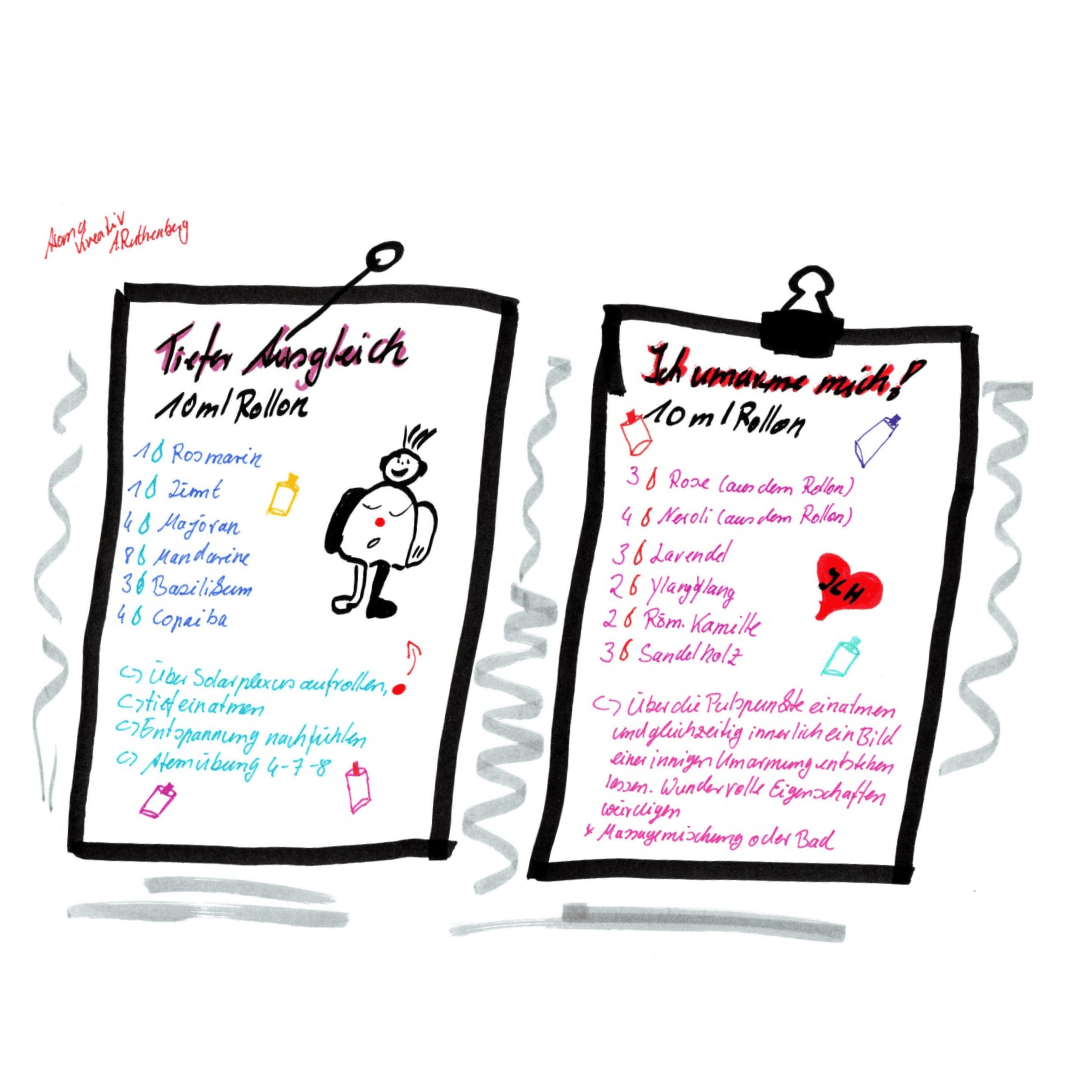 Aroma
Kreativ
A.Ruthenberg
Tiefer Ausgleich
10ml Rollon
1 Rosmarin
1 Zimt
4 Majoran
8 Mandarine
3 Basilikum
4 Copaiba
Über Solarplexus aufrollen,
tief einatmen
Entspannung nachfühlen
Atemübung 4-7-8
Ich umarme mich!
10ml Rollon
3 Rose (aus dem Rollon)
4 Neroli (aus dem Rollon)
3 Lavendel
2 Ylang Ylang
2 Röm. Kamille
3 Sandelholz
ICH
Über die Pulspunkte einatmen
und gleichzeitig innerlich ein Bild
einer innigen Umarmung entstehen
lassen. Wundervolle Eigenschaften
würdigen
* Massagemischung oder Bad